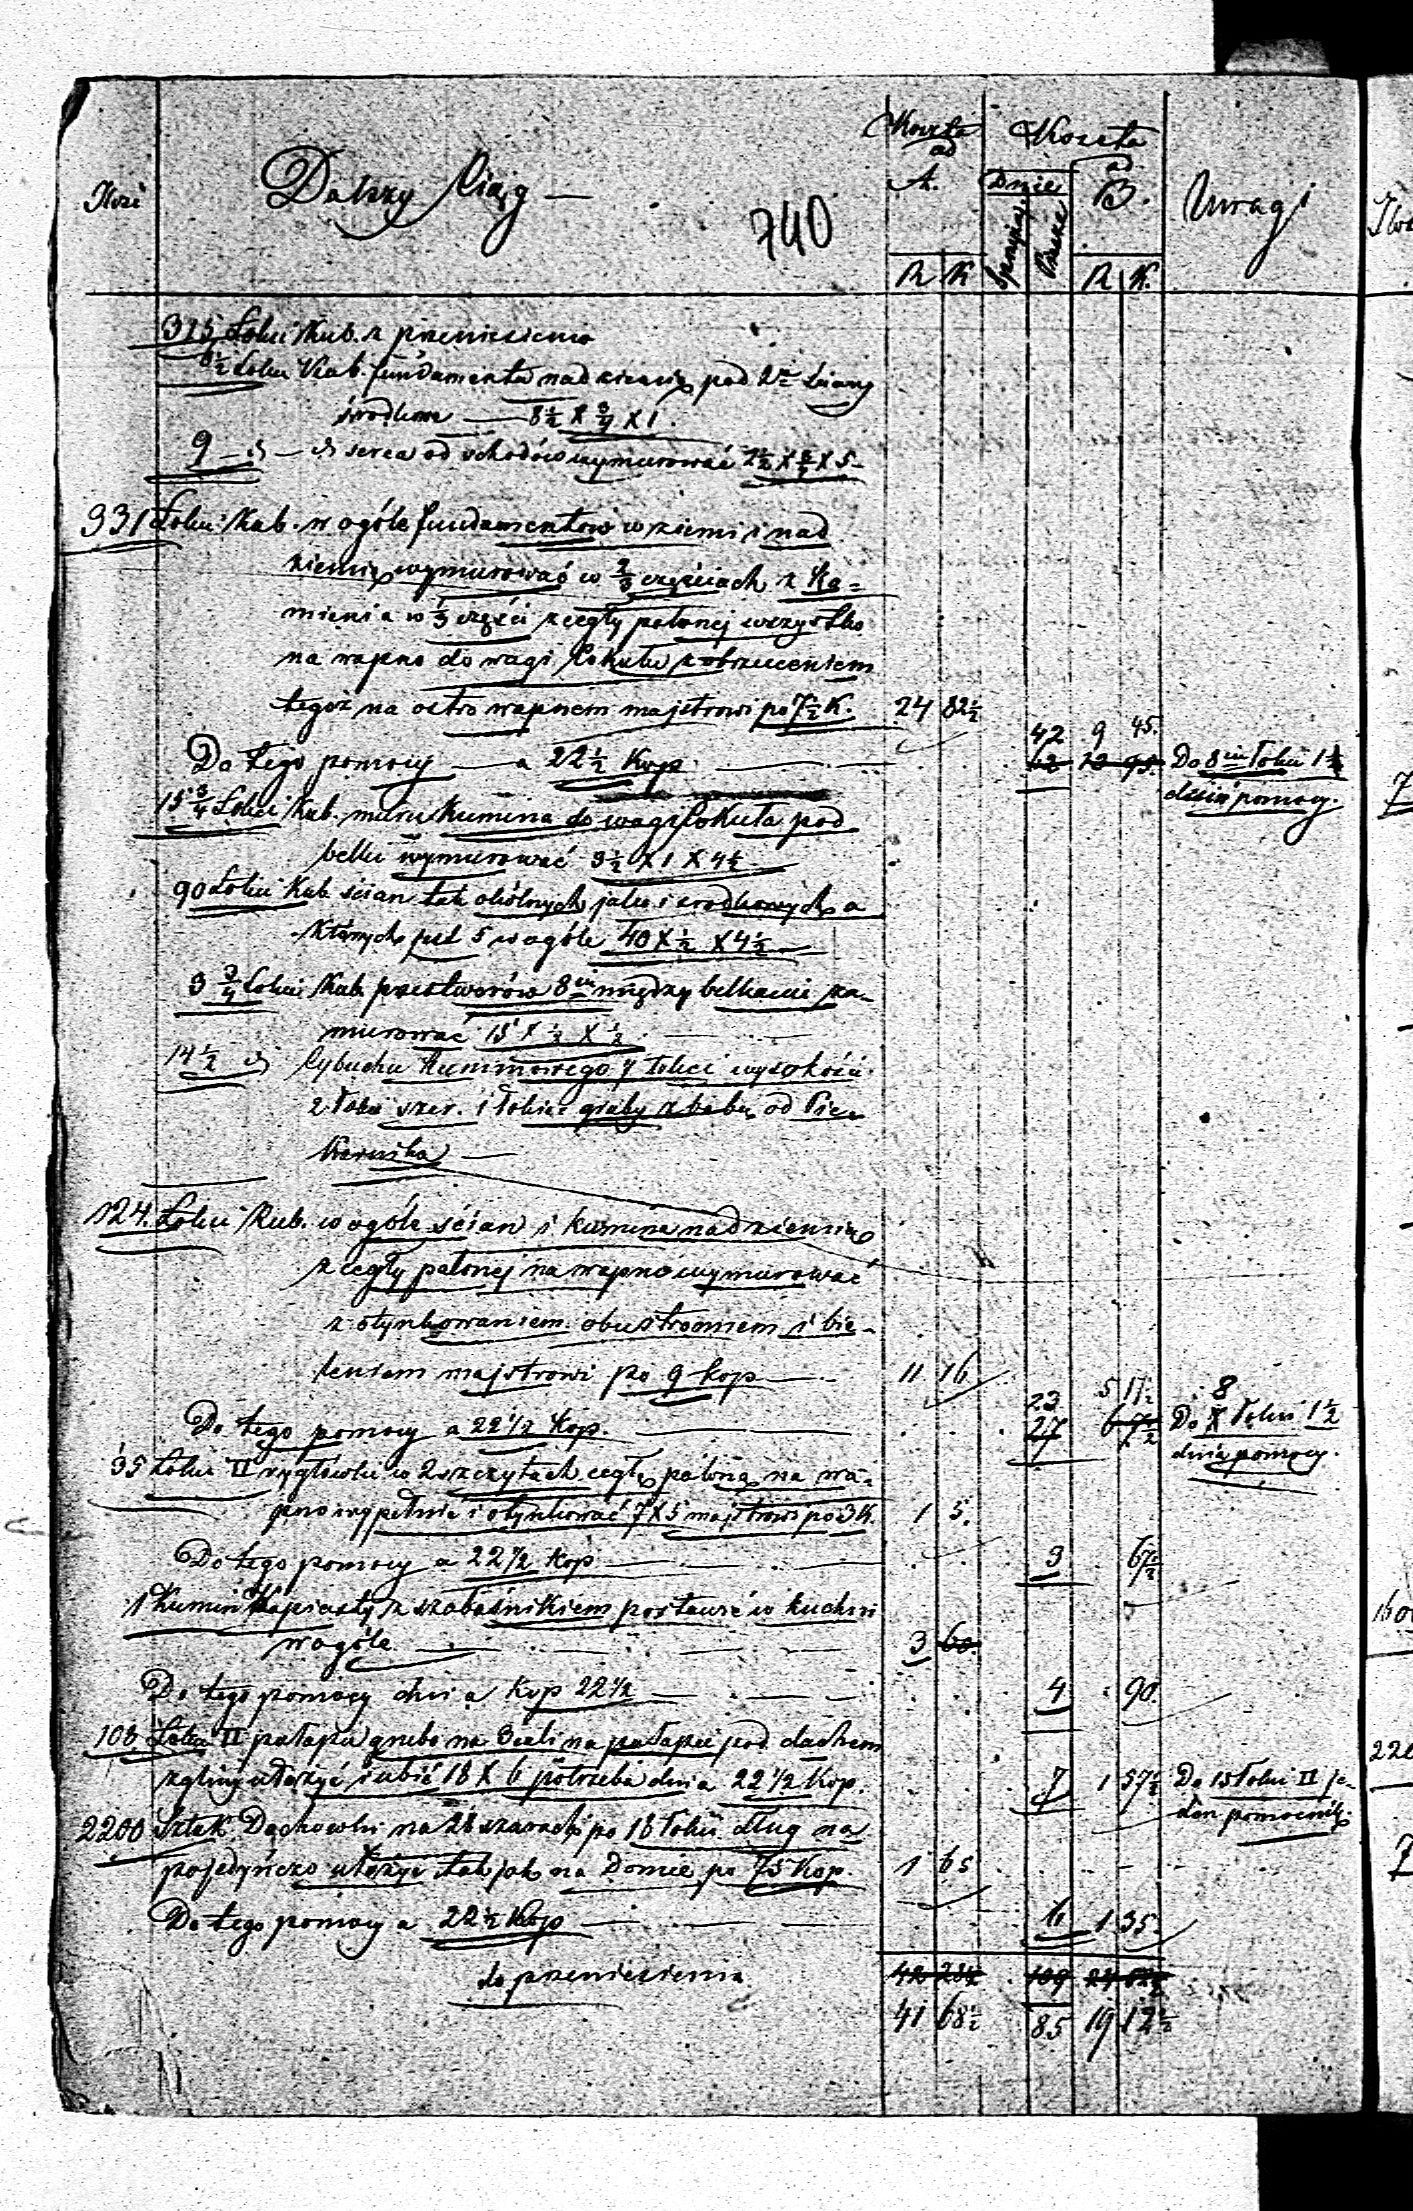 Ilość
Dalszy Ciąg —
740
Koszta
ad
A.
Koszta
ad
B.
Dnie
Sprzężaj.
Piesze
Uwagi
R K
R K.
315 Łokci Kub. z przeniesienia
6½ Łokci Kub. fundamentu nad ziemię pod 2ma ściany
środkowe — 8½ X ¾ X 1.
9 — d — d serca od schodów wymurować X 5 —
331 Łokci Kub. w ogóle fundamentów w ziemi i nad
ziemię wymurować w ⅔ częściach z Ka=
mienia w ⅓ części z cegły palonej wszystko
na wapno do wagi Cokułu z obrzuceniem
tegoż na ostro wapnem majstrowi po 7½ K. 24 82½
42 9 45.
Do tego pomocy — a 22½ Kop. — 62 13 95. Do 8miu łokci 1½
dnia pomocy.
15¾ Łokci Kub. muru Kumina do wagi Cokuła pod
belki wymurować 3½ X 1 X 4½
90 Łokci Kub. ścian tak okólnych jako i środkowych a
których jest 5 w ogóle 40 X ½ X 4½
3¾ Łokci Kub. przestworów 8iu między belkami za=
murować 15 X ½ X ½.
14½ d Cybucha Kuminowego 7 łokci wysokości
2 łokci szer. 1 łokieć gruby z babą od Pie=
karnika —
124. Łokci Kub. w ogóle ścian i kumina nad ziemię
z cegły palonej na wapno wymurować
z otynkowaniem obustronnem i bie=
leniem majstrowi po 9 kop — 11 16
23 5 17½ 8
Do tego pomocy a 22½ Kop. — 27 6 7½ Do X łokci 1½
dnia pomocy.
35 Łokci □ ryglówki w 2 szczytach cegłą paloną na wa=
pno wypełnić i otynkować 7 X 5 majstrowi po 3 K. 1 5.
Do tego pomocy a 22½ Kop — 3 67½
1 Kumin Kapiasty z szabaśnikiem postawić w kuchni
w ogóle — 3 60.
Do tego pomocy dni a Kop 22½ — 4 90.
108 Łokci □ pułapu grubo na 3 cali na pułapie pod dachem
z gliny ułożyć i ubić 18 X 6 potrzeba dni a 22½ Kop. 7 1 57½ Do 15 łokci □ je=
den pomocnik.
2200 Sztuk Dachówki na 28 szarach po 18 łokci dług na
pojedyńczo ułożyć tak jak na Domie po 75 Kop. 1 65
Do tego pomocy a 22½ Kop — 6 1 35
do przeniesienia 42 28½ 109 24 52½
41 68½ 85 19 12½